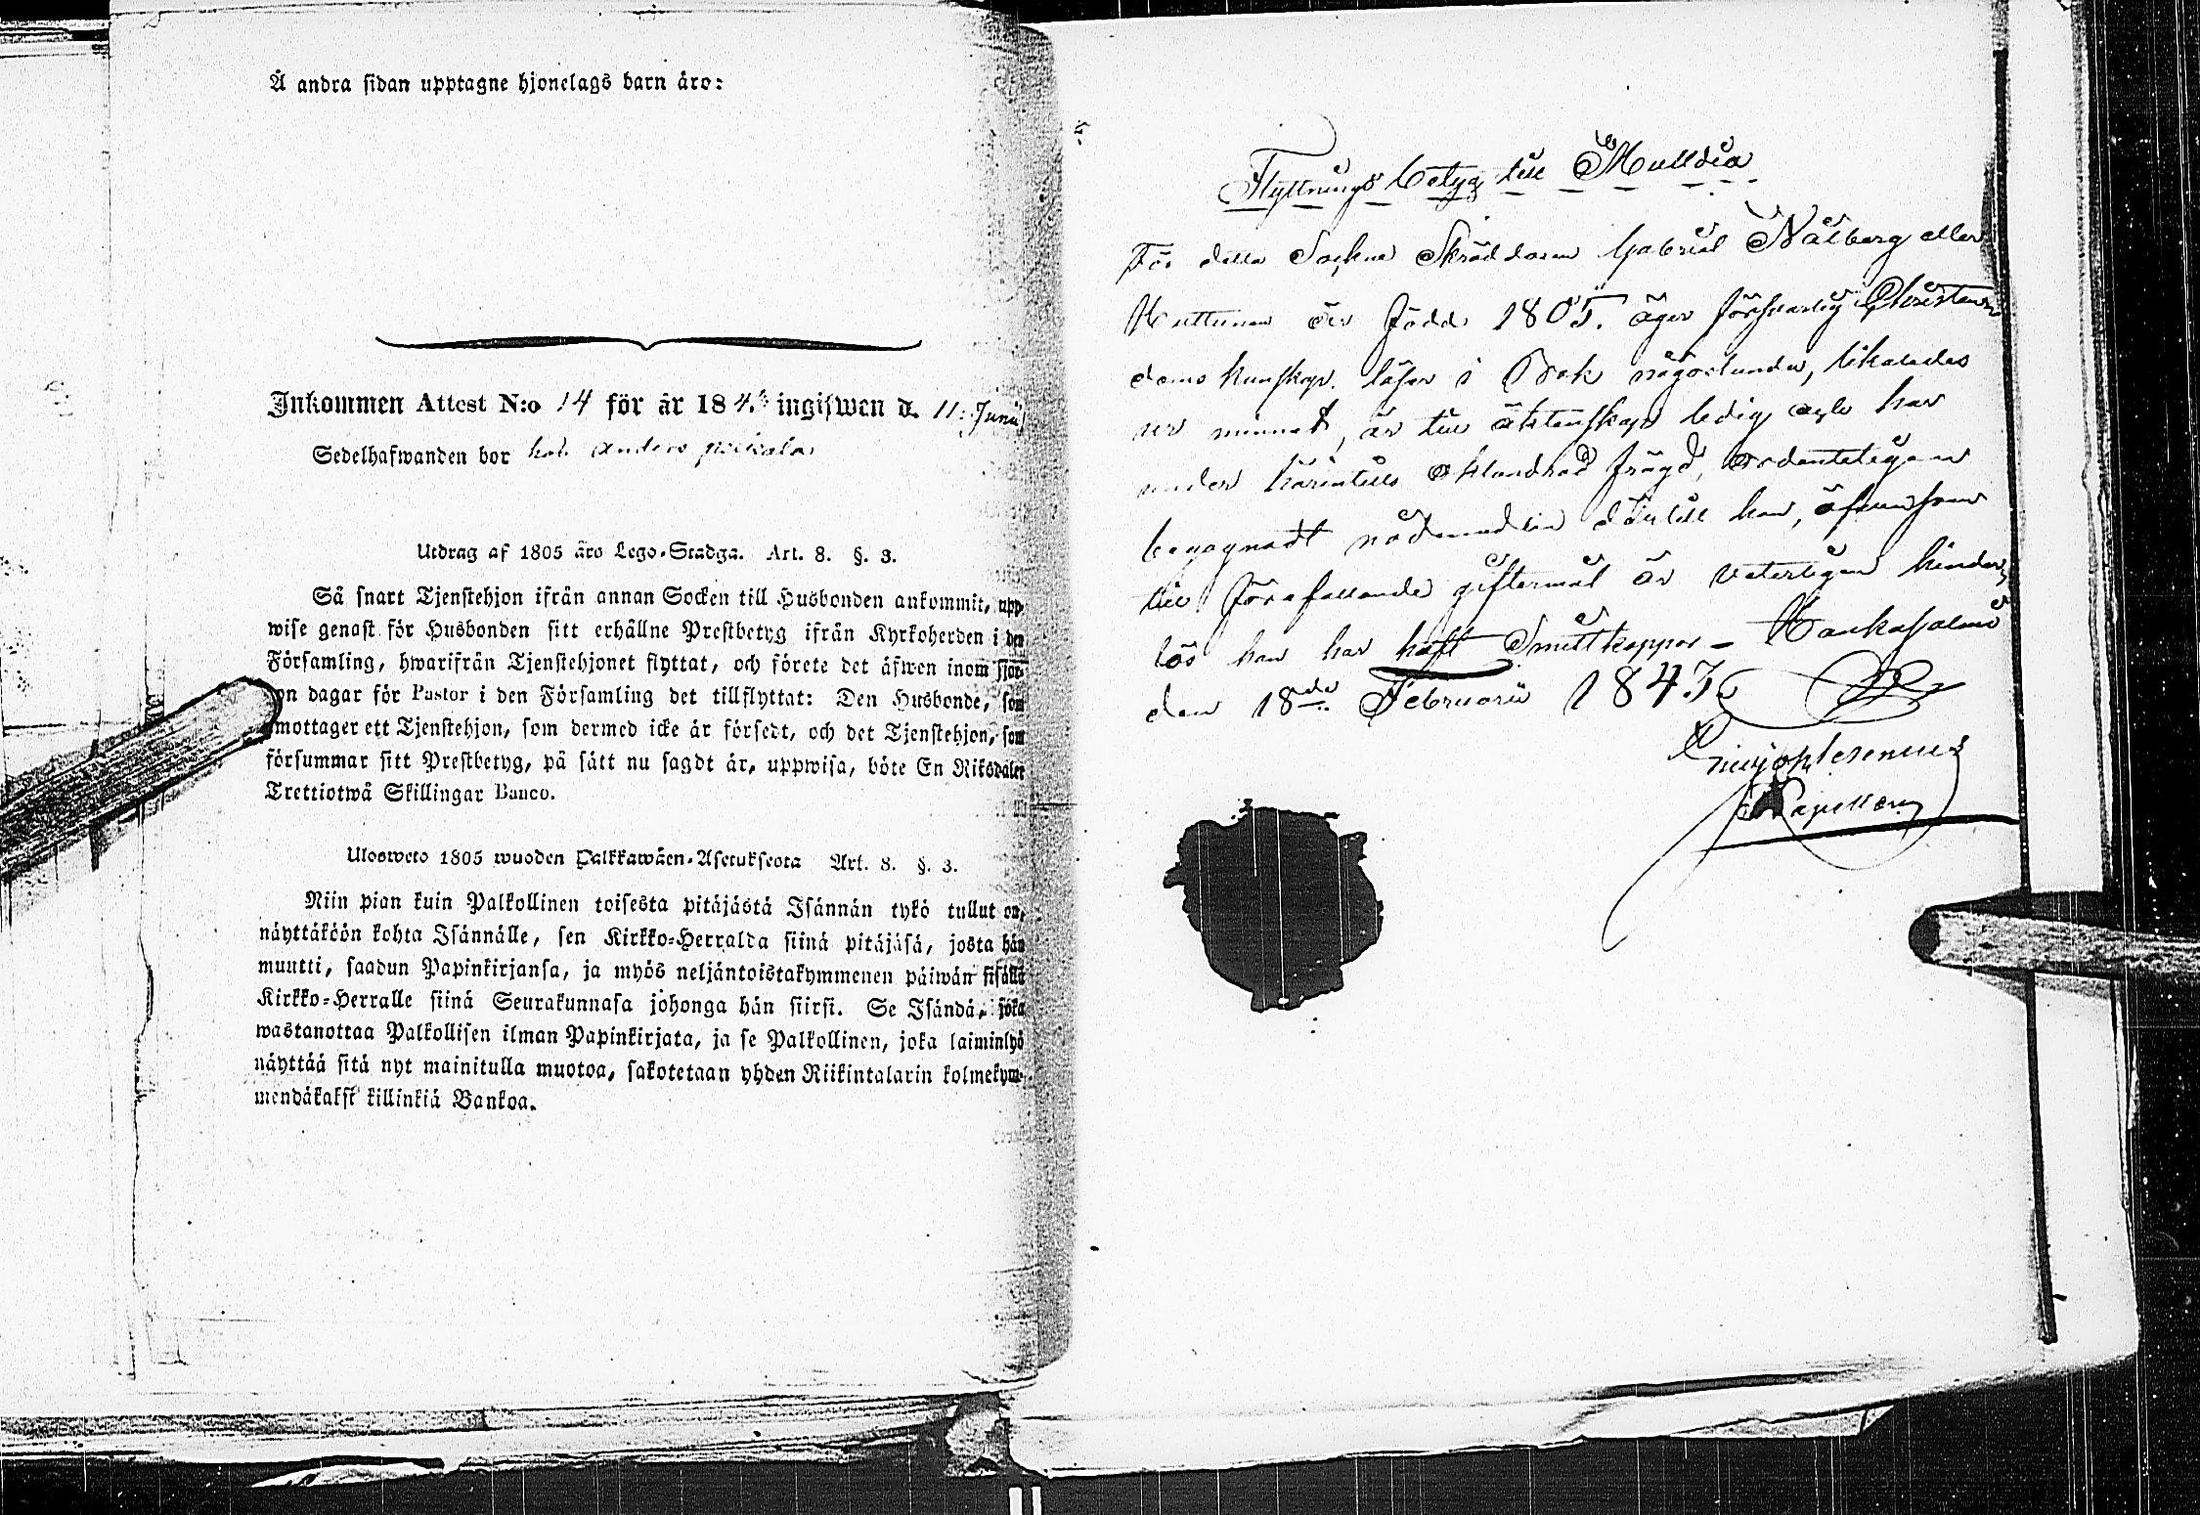 Å andra sidan upptagne hjonelags barn äro:
Inkommen Attest N:o 14 för år 184.3 ingiswen d. 11: Junii
Sedelhafwanden bor hos Anders
Utdrag af 1805 års Lego-Stadga. Art. 8. §. 3.
Så snart Tjenstehjon ifrån annan Socken till Husbonden ankommit, upp-
wise genast för Husbonden sitt erhållne Prestbetyg ifrån Kyrkoherden i den
Församling, hwarifrån Tjenstehjonet flyttat, och förete det äfwen inom fjor-
ton dagar för Pastor i den Församling det tillflyttat: Den Husbonde, som
emottager ett Tjenstehjon, som dermed icke är försedt, och det Tjenstehjon, som
försummar sitt Prestbetyg, på sätt nu sagdt är, uppwisa, böte En Riksdaler
Trettiotwå Skillingar Banco.
Ulosweto 1805 wuoden Palkkawäen-Asetuksesta Art. 8. §. 3.
Niin pian kuin Palkollinen toisesta pitäjästä Isännän tykö tullut on,
näyttäköön kohta Isännälle, sen Kirkko-Herralda siinä pitäjäsä, josta hän
muutti, saadun Papinkirjansa, ja myös neljäntoistakymmenen päiwän sisällä
Kirkko-Herralle siinä Seurakunnasa johonga hän siirsi. Se Isändä, joka
wastanottaa Palkollisen ilman Papinkirjata, ja se Palkollinen, joka laiminlyö
näyttää sitä nyt mainitulla muotoa, sakotetaan yhden Riikintalarin kolmekym-
mendäkaksi killinkiä Bankoa.
Flyttnings betyg till Multia
För detta Sockne Skräddaren Gabriel Nålberg eller
Huttunen är född 1805. äger försvarlig Christen-
doms kunskap. läser i Bok någorlunda, likaledes
ur minnet, är till äktenskap ledig och har
under härintills oklandrad frägd, ordenteligen
begagnadt nådemedlen därtill han, äfvensom
till förefallande giftermål är veterligen hinder-
lös han har haft Smittkoppor – Hankasalmi
den 18de Februarii 1843.
Capellan